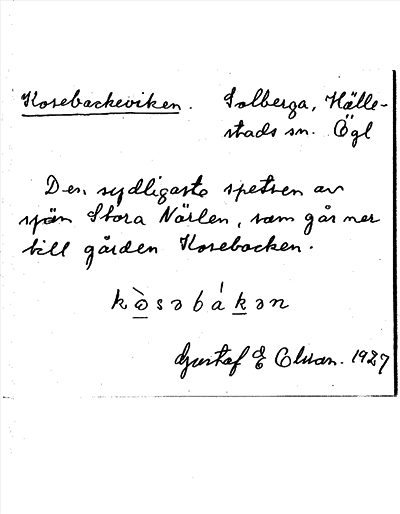 Kosebackeviken. Solberga, Hälle-
stads sn. Ögl
Den sydligaste spetsen av
sjön Stora Närlen, som går ner
till gården Kosebacken.
Gustaf E 1927